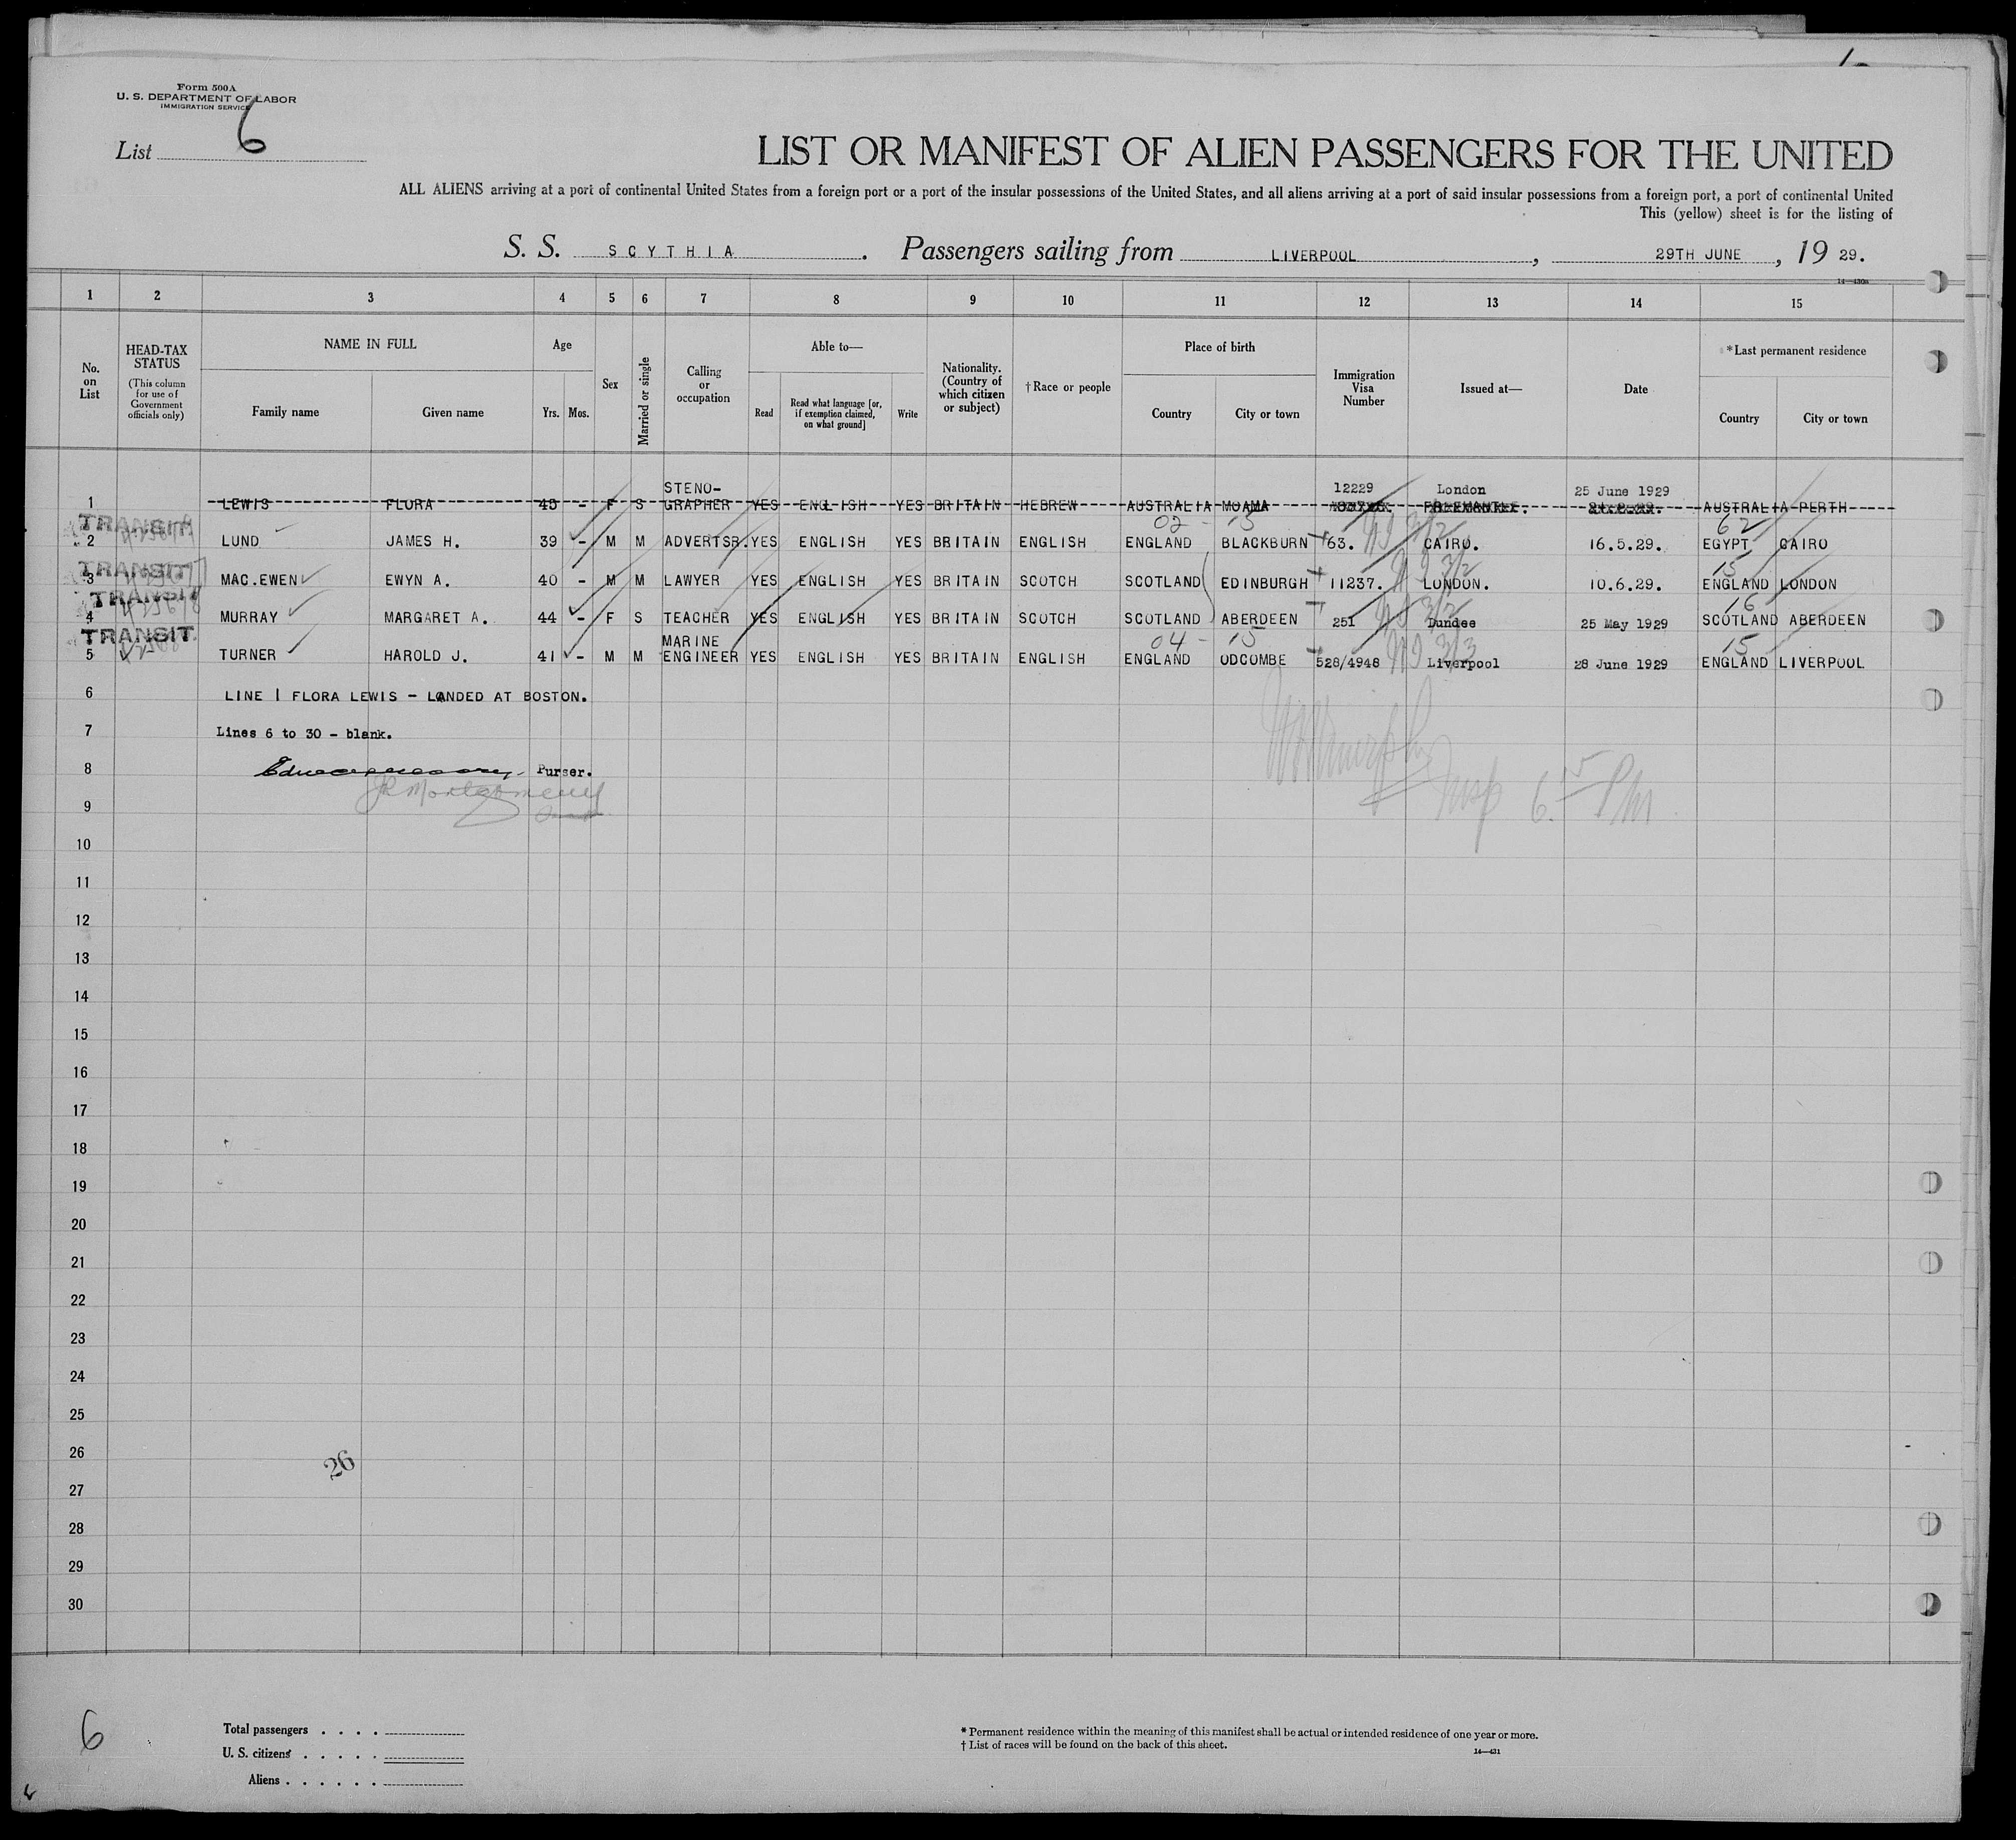 Form 500A
U. S. DEPARTMENT OF LABOR
IMMIGRATION SERVICE
List 6
LIST OR MANIFEST OF ALIEN PASSENGERS FOR THE UNITED
ALL ALIENS arriving at a port of continental United States from a foreign port or a port of the insular possessions of the United States, and all aliens arriving at a port of said insular possessions from a foreign port, a port of continental United
This (yellow) sheet is for the listing of
S. S. SCYTHIA. Passengers sailing from LIVERPOOL, 29TH JUNE, 19 29.
14—430a
1 2 3 4 5 6 7 8 9 10 11 12 13 14 15
No. on List
HEAD-TAX STATUS
(This column for use of Government officials only)
NAME IN FULL
Family name Given name
Age
Yrs. Mos.
Sex
Married or single
Calling or occupation
Able to—
Read
Read what language [or, if exemption claimed, on what ground]
Write
Nationality. (Country of which citizen or subject)
†Race or people
Place of birth
Country City or town
Immigration Visa Number
Issued at—
Date
*Last permanent residence
Country City or town
STENO- 12229 London 25 June 1929
1 LEWIS FLORA 45 - F S GRAPHER YES ENGLISH YES BRITAIN HEBREW AUSTRALIA MOAMA FREEMANTLE. AUSTRALIA PERTH
TRANSIT 02 - 15 62
2 LUND JAMES H. 39 - M M ADVERTSR. YES ENGLISH YES BRITAIN ENGLISH ENGLAND BLACKBURN 63. CAIRO. 16.5.29. EGYPT CAIRO
TRANSIT 3/2 15
3 MAC.EWEN EWYN A. 40 - M M LAWYER YES ENGLISH YES BRITAIN SCOTCH SCOTLAND EDINBURGH 11237. LONDON. 10.6.29. ENGLAND LONDON
TRANSIT 3/2 16
4 MURRAY MARGARET A. 44 - F S TEACHER YES ENGLISH YES BRITAIN SCOTCH SCOTLAND ABERDEEN 251 Dundee 25 May 1929 SCOTLAND ABERDEEN
TRANSIT MARINE 04 - 15 3/3 15
5 TURNER HAROLD J. 41 - M M ENGINEER YES ENGLISH YES BRITAIN ENGLISH ENGLAND ODCOMBE 528/4948 Liverpool 28 June 1929 ENGLAND LIVERPOOL
6 LINE 1 FLORA LEWIS - LANDED AT BOSTON.
7 Lines 6 to 30 - blank.
8 Purser.
JR Montgomery
Murphy
Insp 6.15 PM
9
10
11
12
13
14
15
16
17
18
19
20
21
22
23
24
25
26
26
27
28
29
30
6
Total passengers . . . .
U. S. citizens . . . . .
Aliens . . . . . .
* Permanent residence within the meaning of this manifest shall be actual or intended residence of one year or more.
† List of races will be found on the back of this sheet.
14—431